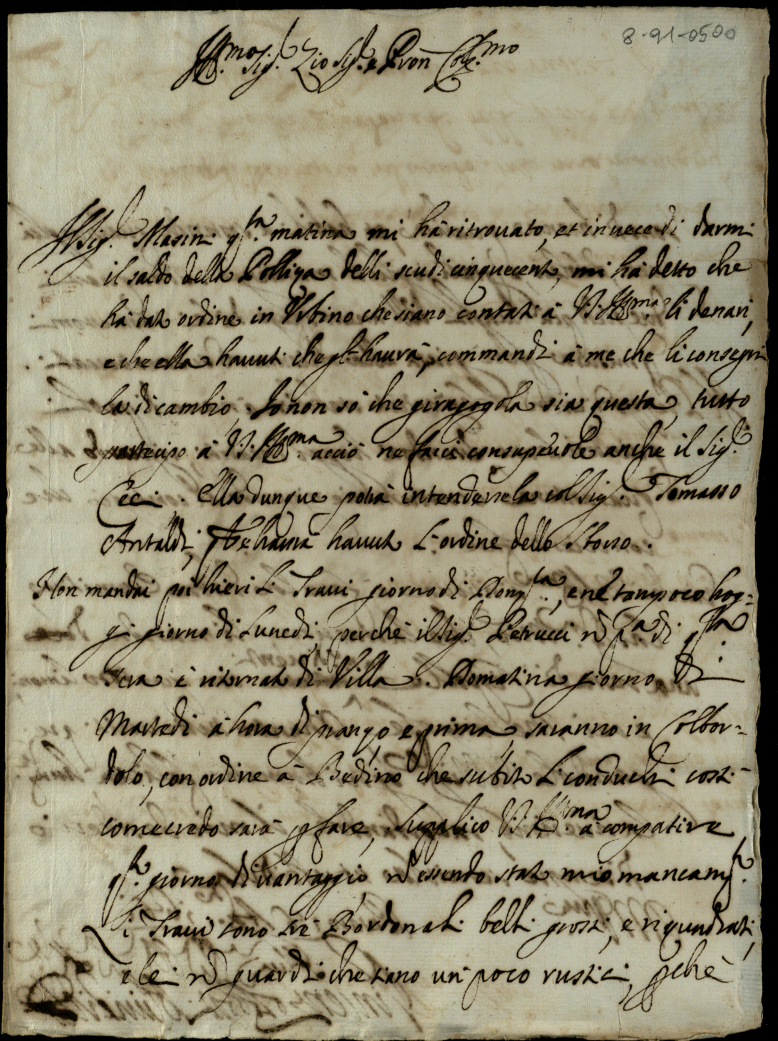 8-91-0500
Ill.mo Sig.r Zio Sig.r e Pron Col.mo
Il Sig.r Masini q.sta matina mi hà ritrovato, et invece di darmi
il saldo della Polliza delli scudi cinquecento, mi hà detto che
hà dato ordine in Urbino che siano contati à V.S. Ill.ma li denari,
e che ella havuti che gl' havrà, commandi à me che li consegni
la di cambio. Io non sò che giragogola sia questa, tutto
partecipo à V.S. Ill.ma acciò ne facci consapevole anche il Sig.r
Ceci. Ella dunque potrà intendersela col Sig.r Tomasso
Antaldi, se havrà havuto l'ordine dello Storso.
Non mandai poi hieri li Travi giorno di Dom.ca, e nè tampoco hog=
gi giorno di Lunedì perche il Sig.r Petrucci p.a di q.sta
sera è ritornato di Villa. Domatina giorno di
Martedì à hora di pranzo, e prima saranno in Colbor=
dolo, con ordine à Budino che subito li conduchi costì
come credo sarà p fare, supplico V.S. Ill.ma à compatire
q.sto giorno di vantaggio, nò essendo stato mio mancam.to
Li Travi sono trè Bordonali belli grossi, e riquadrati,
e lei nò guardi che siano un poco rustici, pche